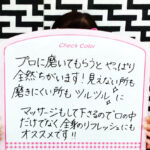 Check Color
プロに磨いてもらうと、やっぱり
全然ちがいます!見えない所も
磨きにくい所もツルツルに
マッサージもして下さるので口の中
だけでなく全身のリフレッシュにも
オススメです!!